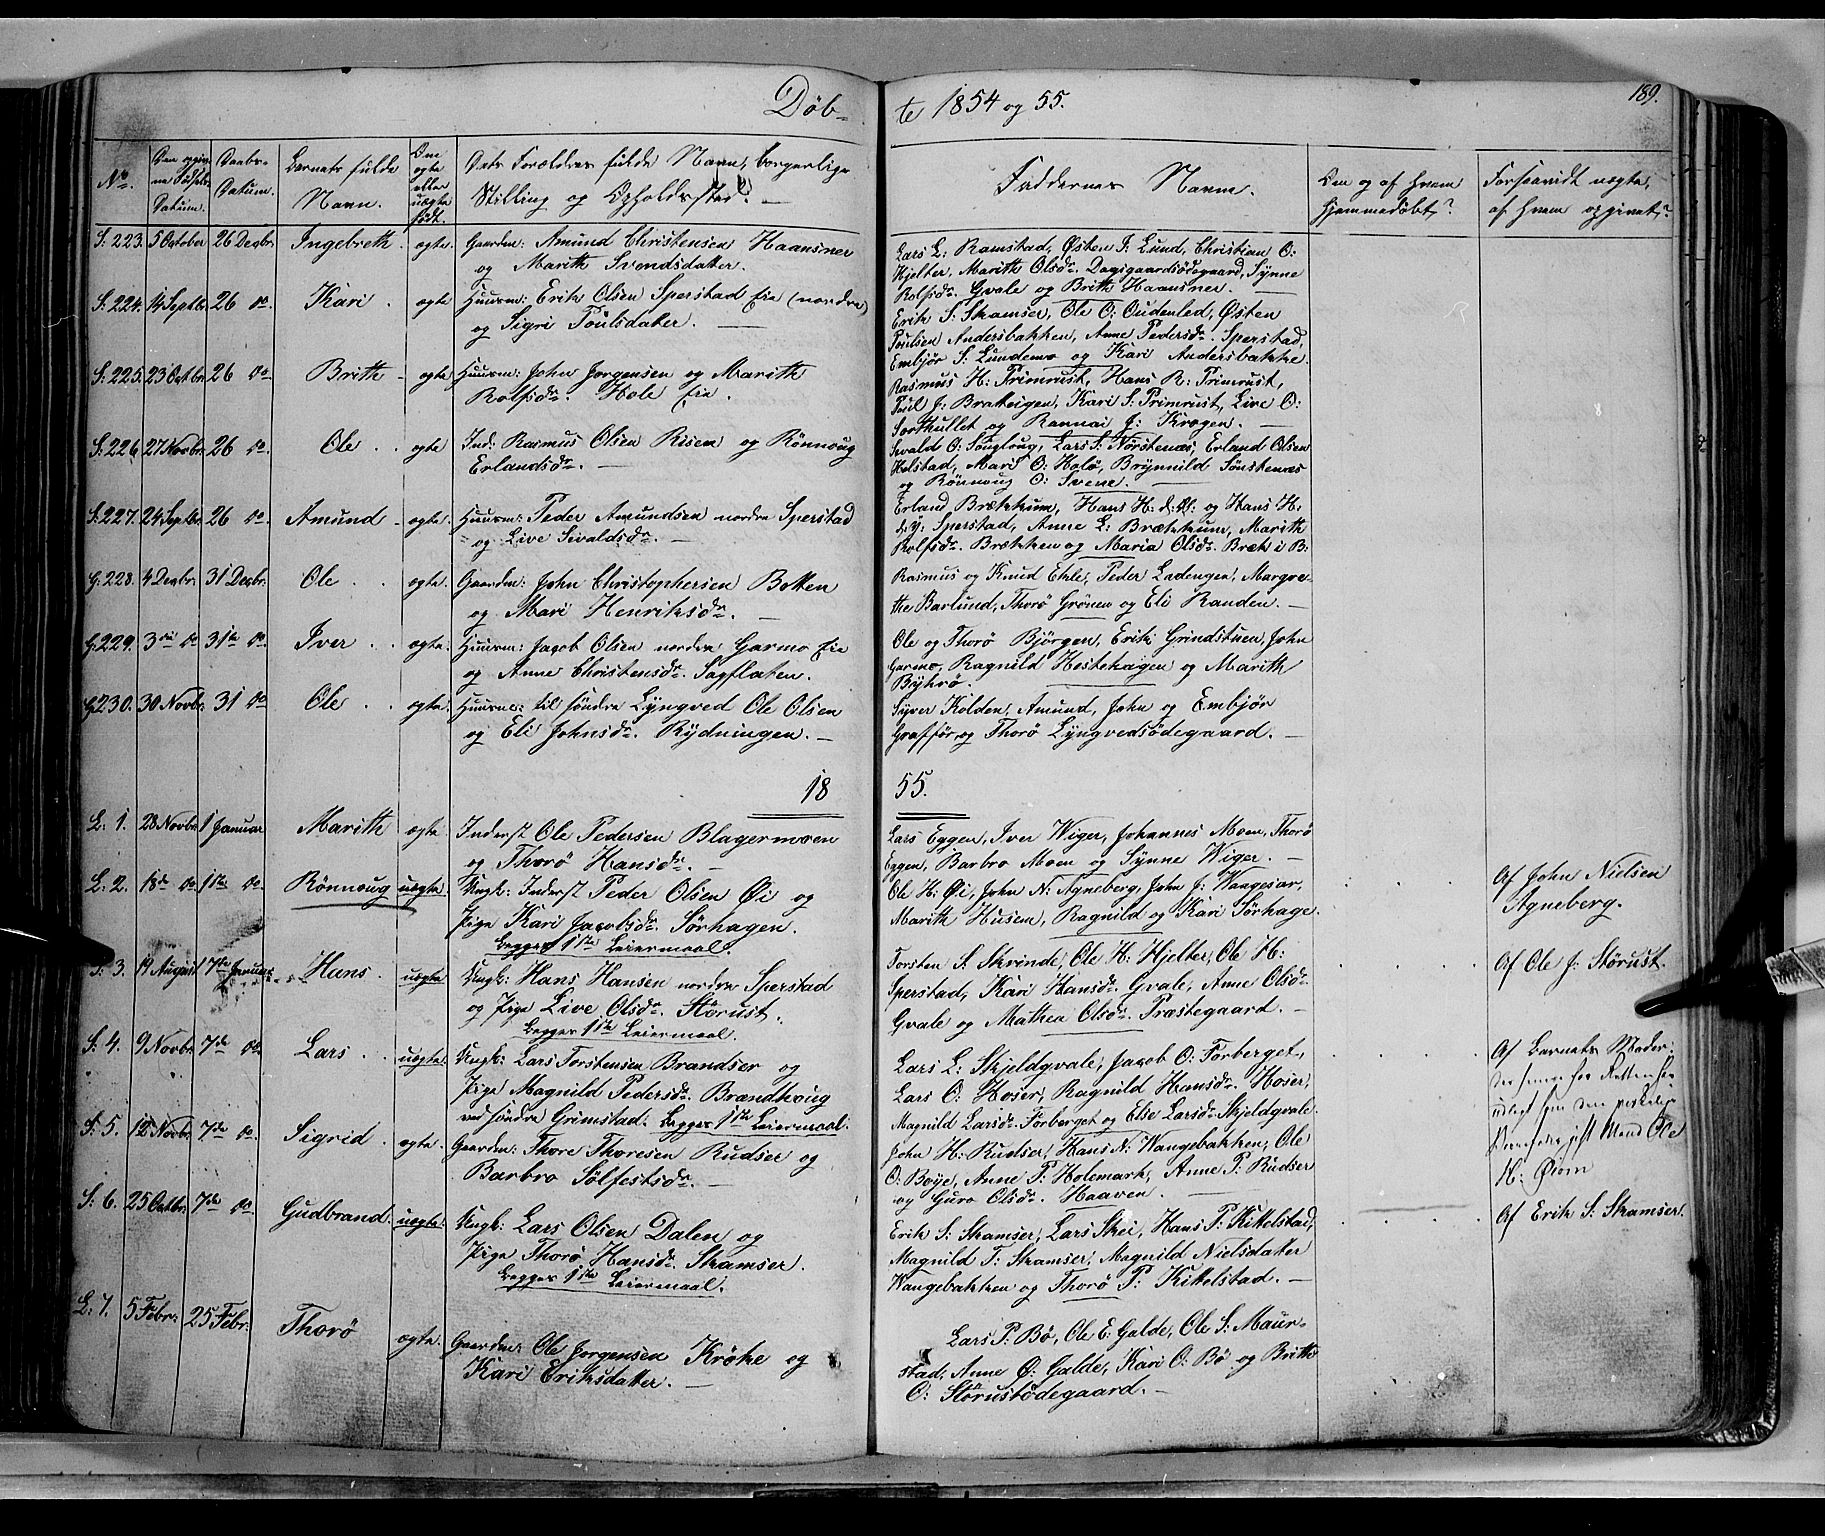 Döb-
te 1854 og 55.
189.
No.
Den opgiv-
ne Fødsels-
Datum.
Daabs-
Datum.
Barnets fulde
Navn.
Om
ægte
eller
uægte
født.
Dets Forældres fulde Navn, borgerlige
Stilling og Opholdssted. —
Faddernes Navn.
Om og af hvem
hjemmedöbt?
Forsaavidt uægte,
af hvem opgivet?
S: 223. 5 October 26 Decbr. Ingebreth. ægte. Gaardm: Amund Christensen Haansner
og Marith Svendsdatter.
Lars L: Ramstad, Østen J: Lund, Christian O:
Hjelter, Marith Olsdr. Dagsgaardsödegaard, Synne
Rolfsdr. Gvale og Brith Haansner. —
S: 224. 14 Septbr. 26 do. Kari. ægte Huusm: Erik Olsen Sperstad Eie (nordre)
og Sigri Poulsdatter. —
Erik S: Skamser, Ole O: Oudenled, Østen
Poulsen Andersbakken, Anne Pedersdr. Sperstad,
Embjör S: Lundemo og Kari Andersbakke.
S: 225. 23 Octbr. 26 do Brith - ægte Huusm: John Jorgensen og Marith
Rolfsdr. Hole Eie. —
Rasmus H: Primrust, Hans R: Primrust,
Poul J: Brakeigen, Kari S: Primrust, Live O:
Sorthullet og Rannei J: Krogen. —
S: 226. 27 Novbr. 26 do. Ole . . ægte Ind: Rasmus Olsen Risem og Rönnoug
Erlandsdr. —
Sevald O: Songloug, Lars S: Norstenæs, Erland Olsen
Holstad, Mari O: Holö, Brÿnnild Sönstenæs
og Rönnoug O: Svene. —
S: 227. 24 Septbr. 26 do. Amund - ægte. Huusm: Peder Amundsen nordre Sperstad
og Live Sevaldsdr. —
Erland Brækkum, Hans H: d: Æ: og Hans H:
d: Y: Sperstad, Anne L: Brækkum, Marith
Rolfsdr. Brækken og Maria Olsdr. Bræk i B:
G: 228. 4 Decbr. 31 Decbr. Ole . . ægte. Gaardm: John Christophersen Botten
og Mari Henriksdr. —
Rasmus og Knud Ekle, Peder Ladengen, Margre-
the Barlund, Thorö Grönen og Eli Randen. —
G: 229. 3die do 31te do. Iver . . ægte. Huusm: Jacob Olsen nordre Garmo Eie
og Anne Christensdr. Sagflaten.
Ole og Thorö Bjórgen, Erik Grindstuen, John
Garmo, Ragnild Hestehagen og Marith
Býkrö. —
G: 230. 30 Novbr. 31 do Ole . . ægte. Huusm: til söndre Lyngved Ole Olsen
og Eli Johnsdr. Rydningen. —
Syver Kolden, Amund, John og Embjör
Graffer og Thorö Lyngvedsödegaard. —
18 55.
L: 1. 28 Novbr. 1 Januar Marith ægte. Inderst Ole Pedersen Blagermoen
og Thorö Hansdr. —
Lars Eggen, Iver Wiger, Johannes Moen, Thorö
Eggen, Barbro Moen og Synne Wiger. —
L: 2. 18de do 1ste do. Rönnoug uægte. Ungk: Inderst Peder Olsen Øi og
Pige Kari Jacobsdr. Sörhagen.
Begges 1ste Leiermaal.
Ole H: Øi, John N: Agneberg, John J: Wangesar,
Marith Husem, Ragnild og Kari Sörhage.
Af John Nielsen
Agneberg.
S: 3. 19 August 7de Januar Hans. uægte Ungk: Hans Hansen nordre Sperstad
og Pige Live Olsdr. Störust.
Begges 1ste Leiermaal.
Torsten S: Skrinde, Ole H: Hjelter, Ole H:
Sperstad, Kari Hansdr. Gvale, Anne Olsdr.
Gvale og Mathea Olsdr. Præstegaard. —
Af Ole J: Störust.
S: 4. 9 Novbr. 7de do. Lars . . uægte. Ungk: Lars Torstensen Brandser og
Pige Magnild Pedersdr. Brandhoug
ved söndre Grimstad: Begges 1ste Leiermaal.
Lars L: Skjeldqvale, Jacob O: Forberget,
Lars O: Hoser, Ragnild Hansdr. Hoser,
Magnild Larsdr. Forberget og Else Larsdr. Skjeldqvale.
Af Barnets Moder.
gift Mand Ole
H: Øiom
S: 5. 12 Novbr. 7de do. Sigrid. ægte. Gaardm: Thore Thoresen Rudser og
Barbro Sölfestsdr. —
John H: Rudser, Hans N: Wangebakken, Ole
O: Boye, Anne P: Holemark, Anne P: Rudser
og Guro Olsdr. Haaven. —
S: 6. 25 Octbr. 7de do. Gudbrand. uægte. Ungk: Lars Olsen Dalen og
Pige Thorö Hansdr. Skamser.
Begges 1ste Leiermaal.
Erik S: Skamser, Lars Skei, Hans P: Kikelstad,
Magnild T: Skamser, Magnild Nielsdatter
Wangebakken og Thorö P: Kikelstad. —
Af Erik S: Skamser.
L: 7. 5 Febr: 25 Febr: Thorö ægte. Gaardm: Ole Jorgensen Kröke og
Kari Eriksdatter. —
Lars P: Bö, Ole E: Galde, Ole S: Maur-
stad, Anne O: Galde, Kari O: Bö og Brith
O: Störustödegaard. —